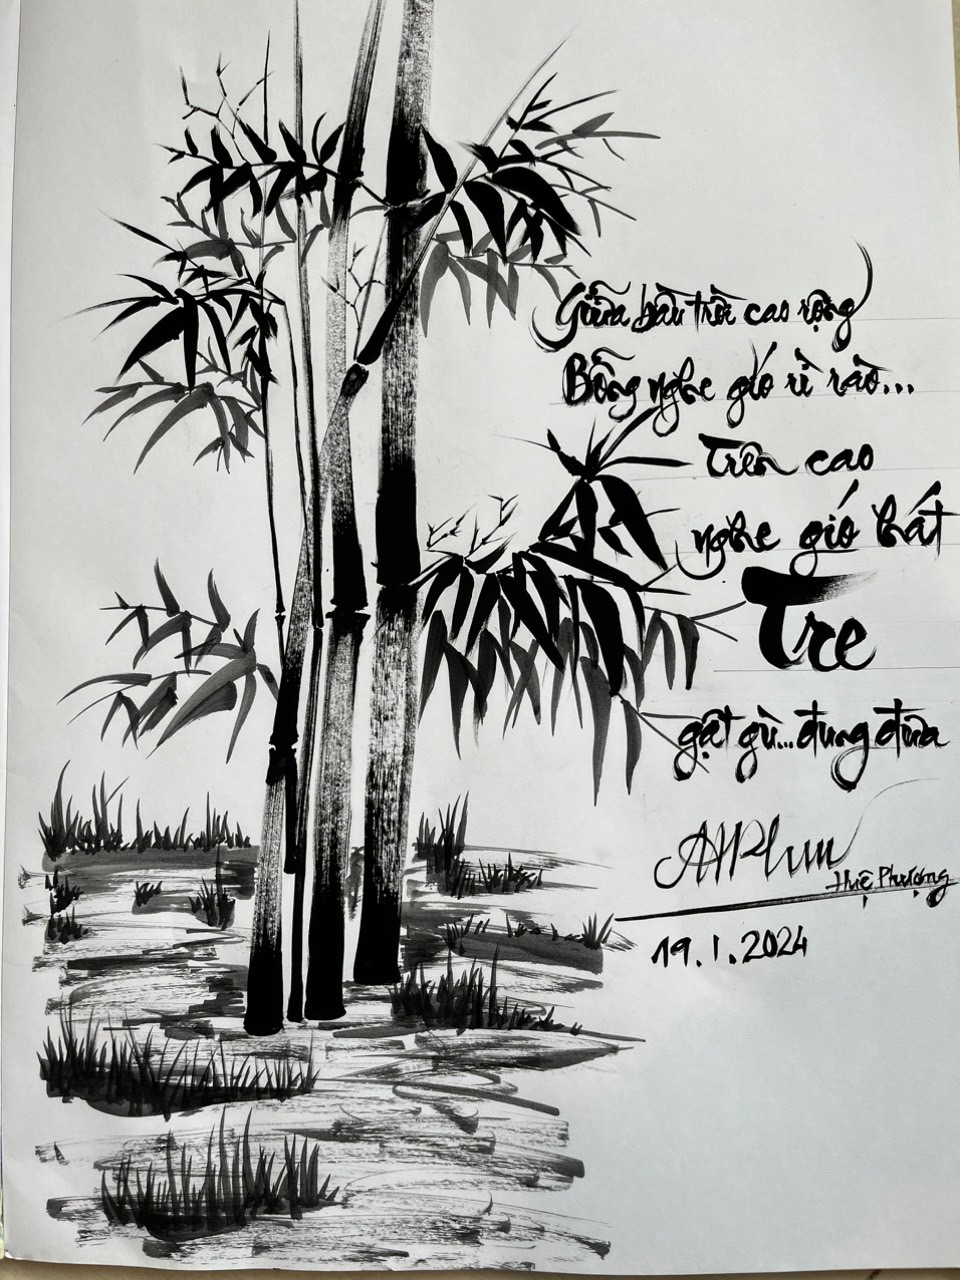 Giữa bầu trời cao rộng
Bỗng nghe gió rì rào...
Trên cao
nghe gió hát
Tre
gật gù... đung đưa
Huệ Phượng
19.1.2024